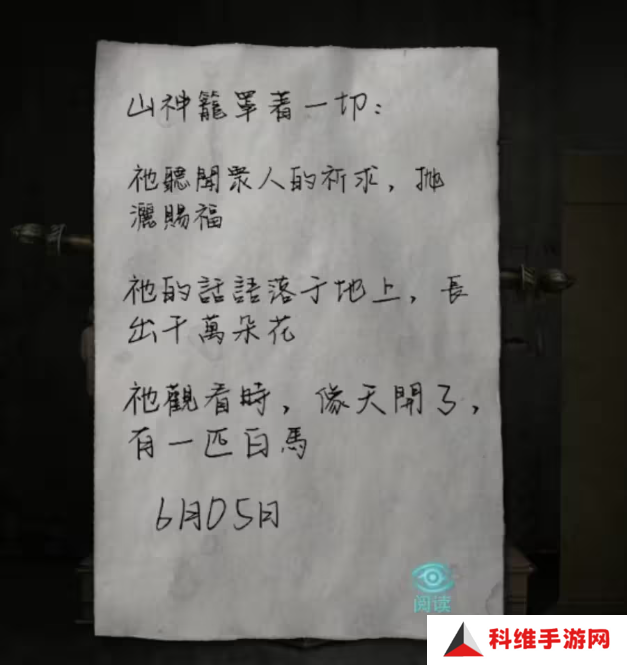 山神籠罩着一切：
祂聽聞眾人的祈求，抛
灑賜福
祂的話語落于地上，長
出千萬朵花
祂觀看時，像天開了，
有一匹白馬
6月05日
阅读
科维手游网